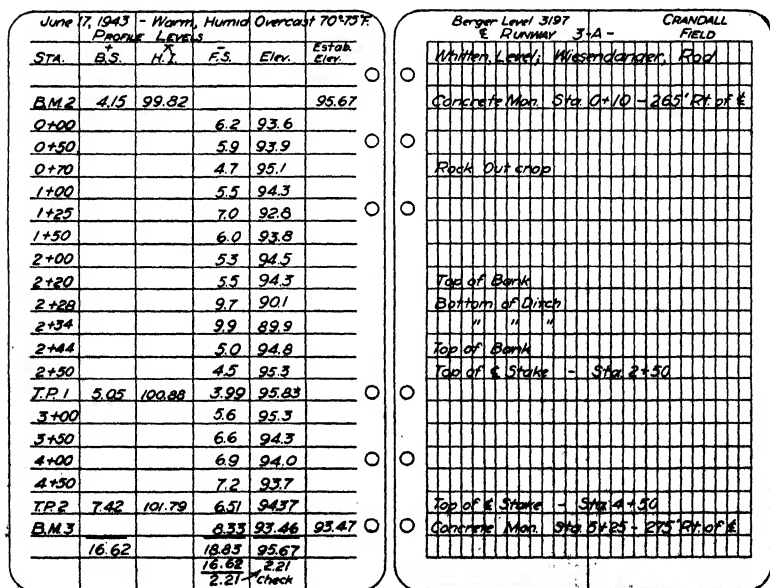 June 17, 1943 - Warm, Humid Overcast 70°-75°F.
PROFILE LEVELS
STA. + B.S. H.I. - F.S. Elev. Estab. Elev.
B.M.2 4.15 99.82 95.67
0+00 6.2 93.6
0+50 5.9 93.9
0+70 4.7 95.1
1+00 5.5 94.3
1+25 7.0 92.8
1+50 6.0 93.8
2+00 5.3 94.5
2+20 5.5 94.3
2+28 9.7 90.1
2+34 9.9 89.9
2+44 5.0 94.8
2+50 4.5 95.3
T.P.1 5.05 100.88 3.99 95.83
3+00 5.6 95.3
3+50 6.6 94.3
4+00 6.9 94.0
4+50 7.2 93.7
T.P.2 7.42 101.79 6.51 94.37
B.M.3 8.33 93.46 93.47
16.62 18.83 95.67
16.62 2.21
2.21 Check
Berger Level 3197 CRANDALL
℄ RUNWAY 3-A- FIELD
Whitten, Level; Wiesendanger, Rod
Concrete Mon. Sta. 0+10 - 265' Rt. of ℄
Rock Out crop
Top of Bank
Bottom of Ditch
" " "
Top of Bank
Top of ℄ Stake - Sta. 2+50
Top of ℄ Stake - Sta. 4+50
Concrete Mon. Sta. 5+25 - 275' Rt. of ℄